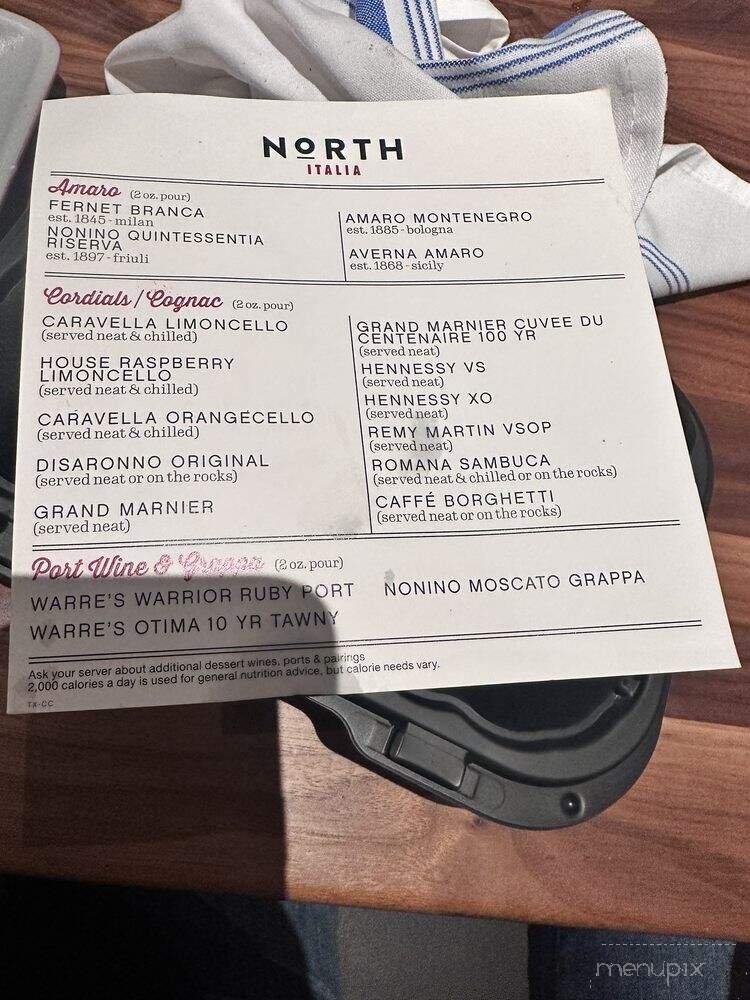 NORTH
ITALIA
Amaro (2 oz. pour)
FERNET BRANCA
est. 1845 - milan
NONINO QUINTESSENTIA
RISERVA
est. 1897 - friuli
AMARO MONTENEGRO
est. 1885 - bologna
AVERNA AMARO
est. 1868 - sicily
Cordials / Cognac (2 oz. pour)
CARAVELLA LIMONCELLO
(served neat & chilled)
HOUSE RASPBERRY
LIMONCELLO
(served neat & chilled)
CARAVELLA ORANGECELLO
(served neat & chilled)
DISARONNO ORIGINAL
(served neat or on the rocks)
GRAND MARNIER
(served neat)
GRAND MARNIER CUVEE DU
CENTENAIRE 100 YR
(served neat)
HENNESSY VS
(served neat)
HENNESSY XO
(served neat)
REMY MARTIN VSOP
(served neat)
ROMANA SAMBUCA
(served neat & chilled or on the rocks)
CAFFÉ BORGHETTI
(served neat or on the rocks)
Port Wine & Grappa (2 oz. pour)
WARRE'S WARRIOR RUBY PORT
WARRE'S OTIMA 10 YR TAWNY
NONINO MOSCATO GRAPPA
Ask your server about additional dessert wines, ports & pairings
2,000 calories a day is used for general nutrition advice, but calorie needs vary.
TX-CC
menupix